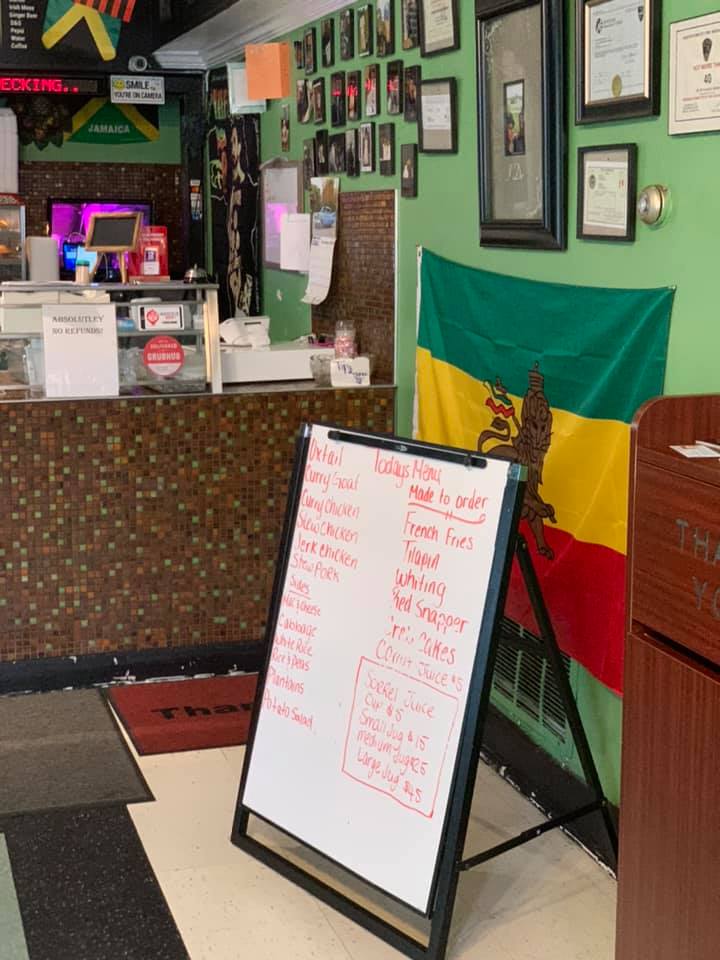 Irish Moss
Ginger Beer
D&G
Pepsi
Water
Coffee
HECKING..
SMILE
YOU'RE ON CAMERA
JAMAICA
ABSOLUTLEY
NO REFUNDS!
GRUBHUB
Tips
40
Todays Menu
Oxtail
Curry Goat
Curry Chicken
Stew Chicken
Jerk Chicken
Stew Pork
Sides
Mac & cheese
Cabbage
White Rice
Rice & Peas
Plantains
Potato Salad
Made to order
French Fries
Tilapia
Whiting
Red Snapper
Cakes
Carrot Juice $5
Sorrel Juice
Cup $5
Small Jug $15
medium Jug $25
Large Jug $45
Than
THA
YO